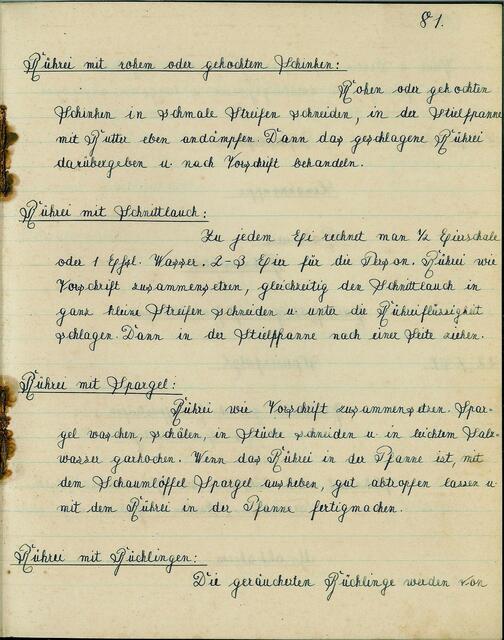 81.
Rührei mit rohem oder gekochtem Schinken:
Rohen oder gekochten
Schinken in schmale Streifen schneiden, in der Stielpfanne
mit Butter eben andämpfen. Dann das geschlagene Rührei
darübergeben u. nach Vorschrift behandeln.
Rührei mit Schnittlauch:
Zu jedem Ei rechnet man ½ Eierschale
oder 1 Eßl. Wasser. 2-3 Eier für die Person. Rührei wie
Vorschrift zusammensetzen, gleichzeitig den Schnittlauch in
ganz kleine Streifen schneiden u. unter die Rühreiflüssigkeit
schlagen. Dann in der Stielpfanne nach einer Seite ziehen.
Rührei mit Spargel:
Rührei wie Vorschrift zusammensetzen. Spar-
gel waschen, schälen, in Stücke schneiden u in leichtem Salz-
wasser garkochen. Wenn das Rührei in der Pfanne ist, mit
dem Schaumlöffel Spargel ausheben, gut abtropfen lassen u
mit dem Rührei in der Pfanne fertigmachen.
Rührei mit Bücklingen:
Die geräucherten Bücklinge werden von